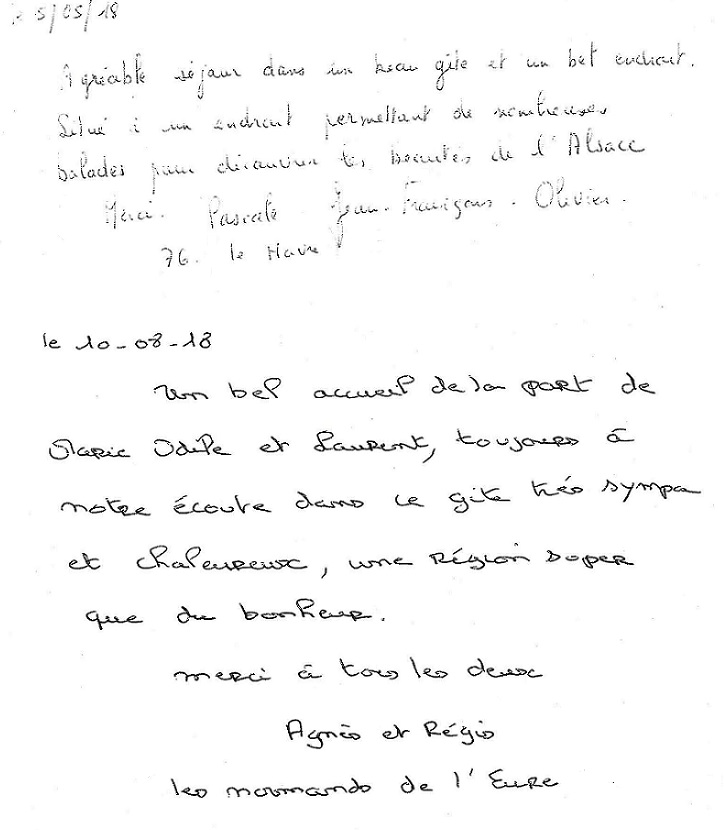 le 5/05/18
Agréable séjour dans un beau gîte et un bel endroit.
Situé à un endroit permettant de nombreuses
balades pour découvrir les beautés de l'Alsace
Merci. Pascale Jean-François. Olivier.
76. le Havre
le 10-08-18
Un bel accueil de la part de
Marie Odile et Laurent, toujours à
notre écoute dans ce gite très sympa
et chaleureux, une Région super
que du bonheur.
merci à tous les deux
Agnès et Régis
les normands de l'Eure